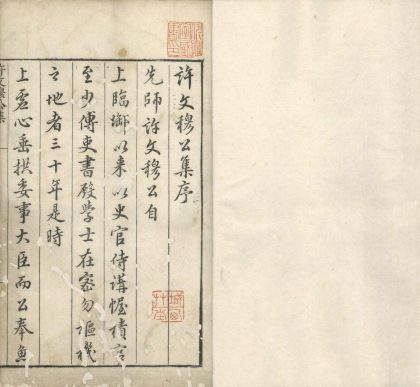 許文穆公集序
先師許文穆公自
上臨御以来以史官侍講幄積官
至少傅吏書殿學士在密勿樞機
之地者三十年是時
上虛心垂拱委事大臣而公奉魚